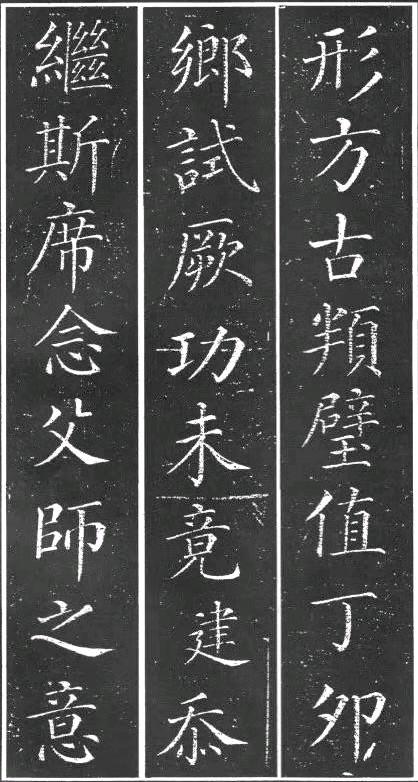 形方古頖壁值丁卯
鄉試厥功未竟建忝
繼斯席念父師之意